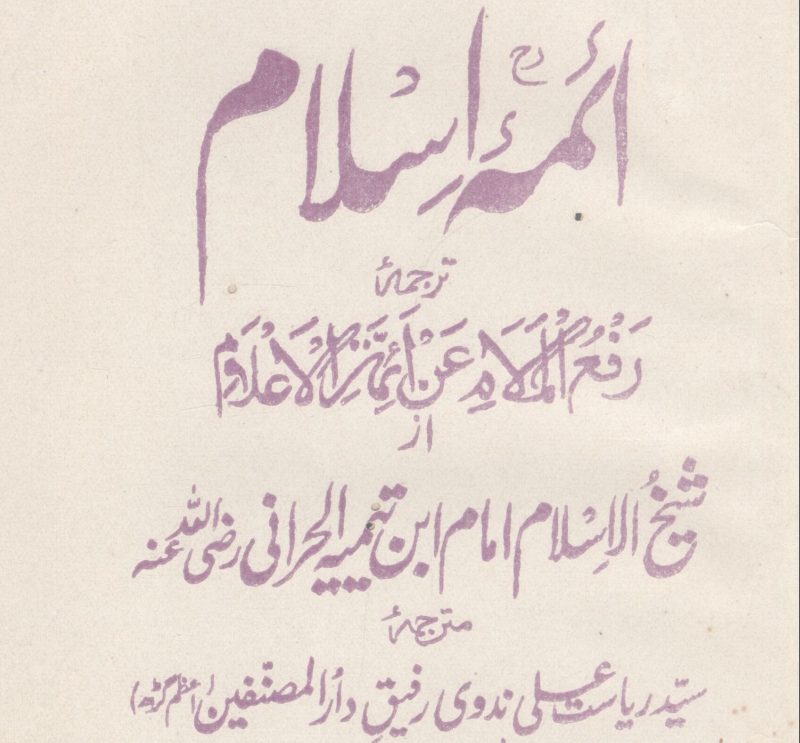 ائمۂ اِسلام
ترجمۂ
رَفْعُ الْمَلَامِ عَنْ اَئِمَّةِ الْاَعْلَام
از
شیخُ الاِسْلام امام ابن تیمیہ الحرانی رضی اللہ عنہ
مترجمۂ
سیّد ریاست علی ندوی رفیقِ دارُ المصنّفین (اعظم گڑھ)